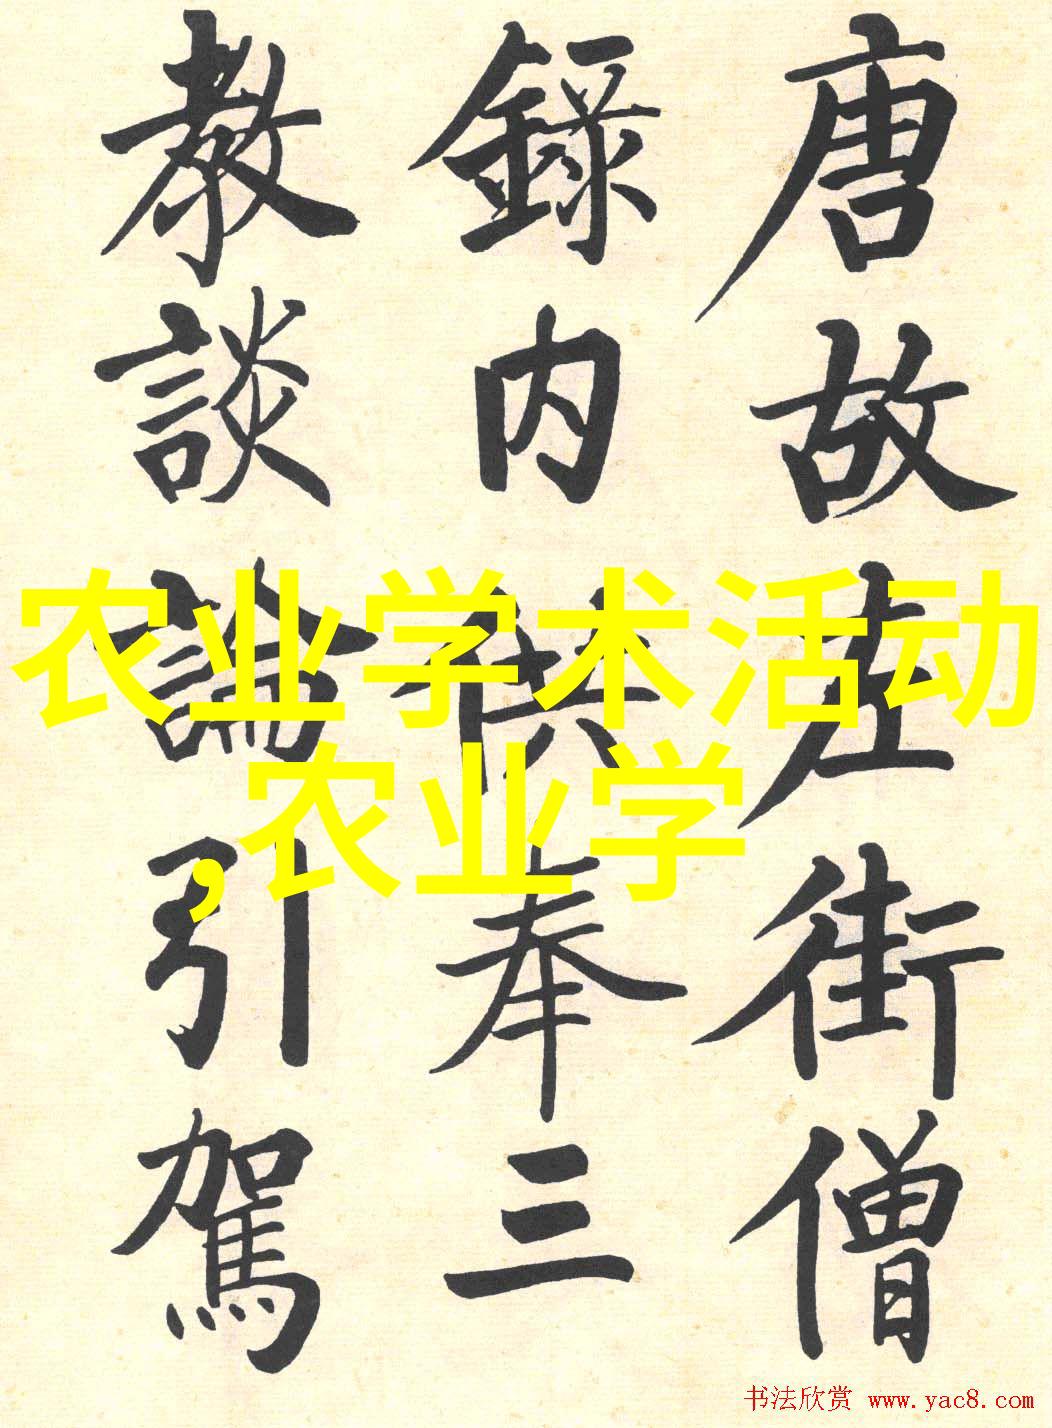 唐故左街僧
錄内供奉三
教談論引駕
农业学术活动
,农业学
书法欣赏 www.yac8.com